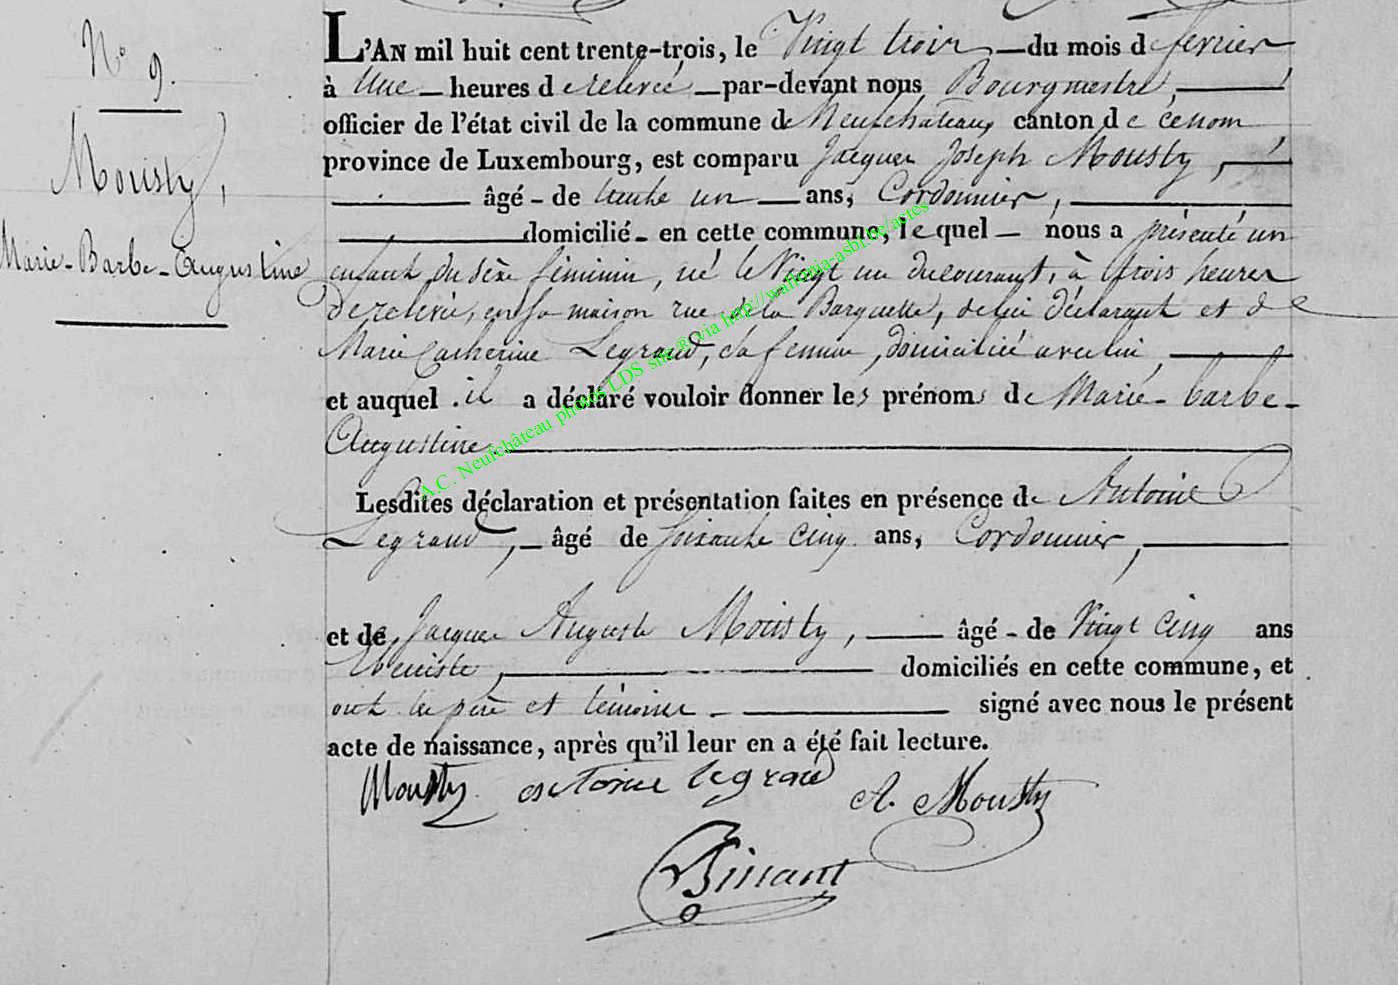 N° 9.
Mousty,
Marie-Barbe-Augustine
L'AN mil huit cent trente-trois, le Vingt trois — du mois de fevrier
à Une — heures de relevée, — par-devant nous Bourgmestre, —
officier de l'état civil de la commune de Neufchateau, canton de ce nom
province de Luxembourg, est comparu Jacques Joseph Mousty, —
— âgé - de trente un — ans, Cordonnier, —
— domicilié - en cette commune, lequel — nous a présenté un
enfant du sèxe féminin, né le Vingt un du courant, à trois heures
de relevée, en sa maison rue de la Barquette, de lui déclarant et de
Marie Catherine Legrand, sa femme, domiciliée avec lui, —
et auquel il a déclaré vouloir donner les prénoms de Marie-barbe-
Augustine —
Lesdites déclaration et présentation faites en présence de Antoine
Legrand, — âgé de soixante cinq ans, Cordonnier, —
et de Jacques Auguste Mousty, — âgé - de Vingt cinq ans
Ebeniste, — domiciliés en cette commune, et
ont les père et témoins — signé avec nous le présent
acte de naissance, après qu'il leur en a été fait lecture.
Mousty antoine legrand A. Mousty
A.C. Neufchâteau photos LDS site via http://wallonia-asbl.be/actes